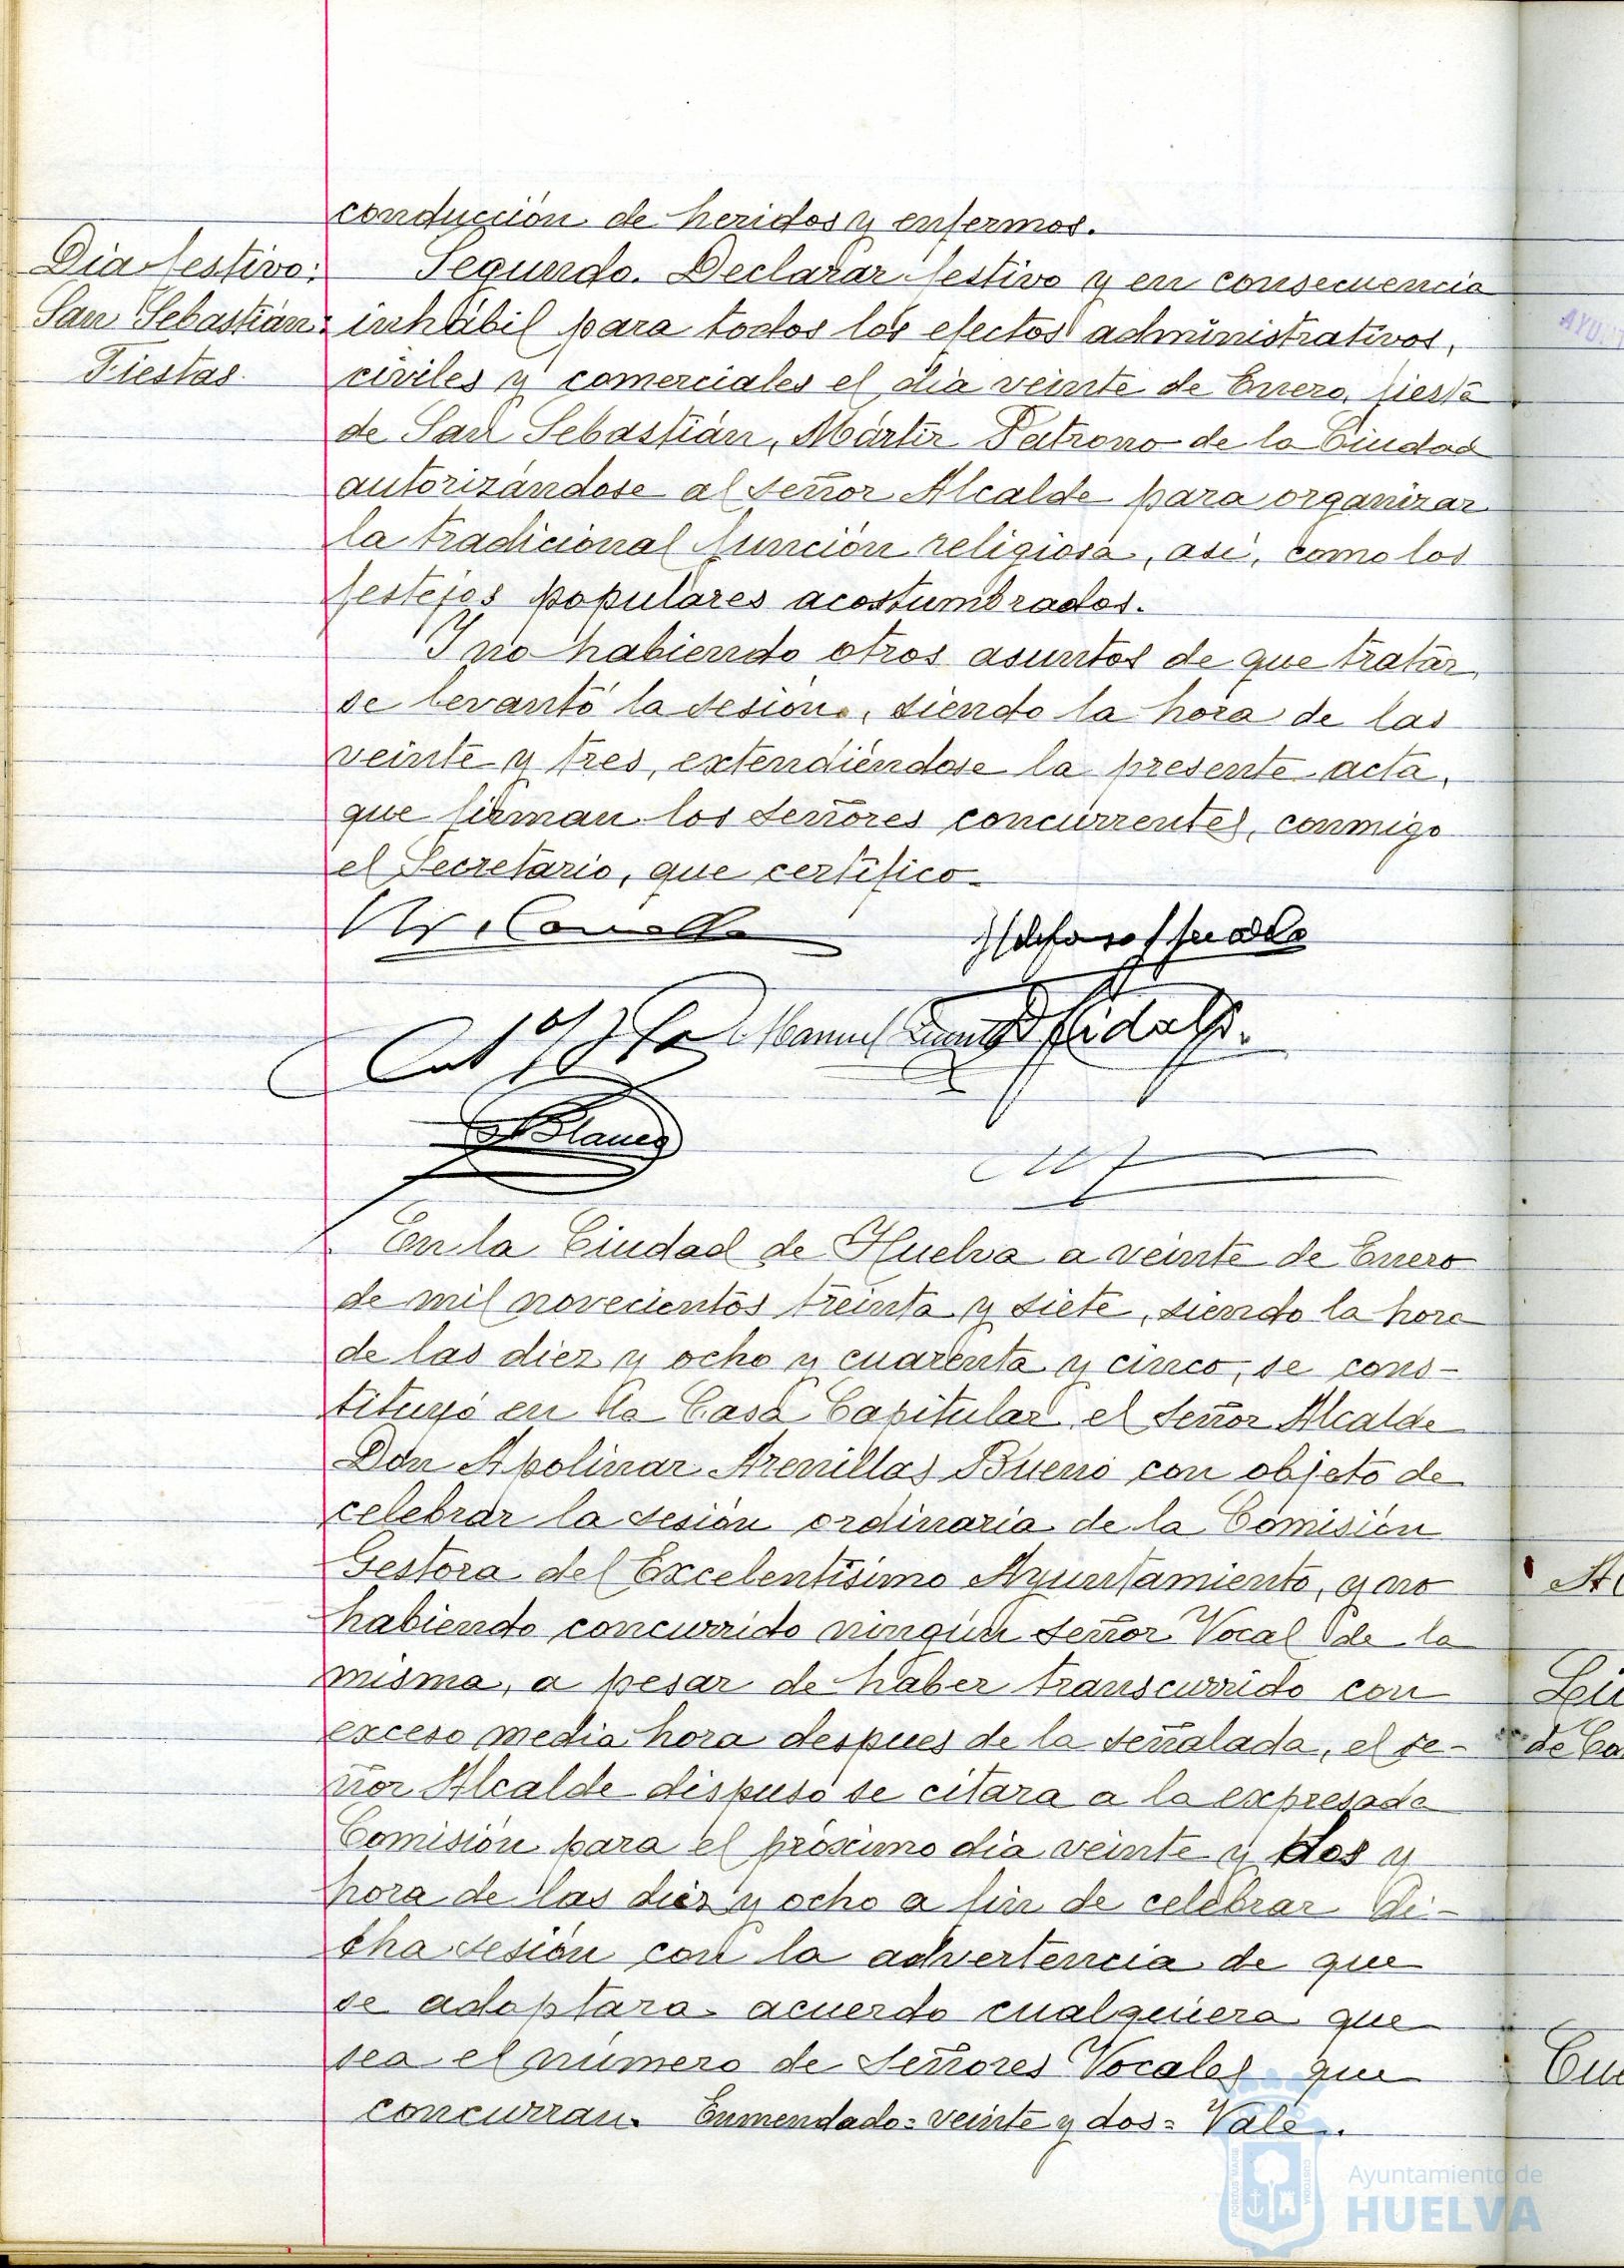 conducción de heridos y enfermos.
Dia festivo:
San Sebastián:
Fiestas.
Segundo. Declarar festivo y en consecuencia
inhábil para todos los efectos administrativos,
civiles y comerciales el dia veinte de Enero, fiesta
de San Sebastián, Mártir Patrono de la Ciudad
autorizándose al señor Alcalde para organizar
la tradicional función religiosa, asi, como los
festejos populares acostumbrados.
Y no habiendo otros asuntos de que tratar
se levantó la sesión, siendo la hora de las
veinte y tres, extendiéndose la presente acta,
que firman los Señores concurrentes, conmigo
el Secretario, que certifico.
Manuel
Hidalgo.
Blanco
En la Ciudad de Huelva a veinte de Enero
de mil novecientos treinta y siete, siendo la hora
de las diez y ocho y cuarenta y cinco, se cons-
tituyó en la Casa Capitular el Señor Alcalde
Don Apolinar Arenillas Bueno con objeto de
celebrar la sesión ordinaria de la Comisión
Gestora del Excelentísimo Ayuntamiento, y no
habiendo concurrido ningún Señor Vocal de la
misma, a pesar de haber transcurrido con
exceso media hora despues de la señalada, el se-
ñor Alcalde dispuso se citara a la expresada
Comisión para el próximo dia veinte y dos y
hora de las diez y ocho a fin de celebrar di-
cha sesión con la advertencia de que
se adoptara acuerdo cualquiera que
sea el número de Señores Vocales que
concurran. Enmendado= veinte y dos= Vale.
Ayuntamiento de
HUELVA